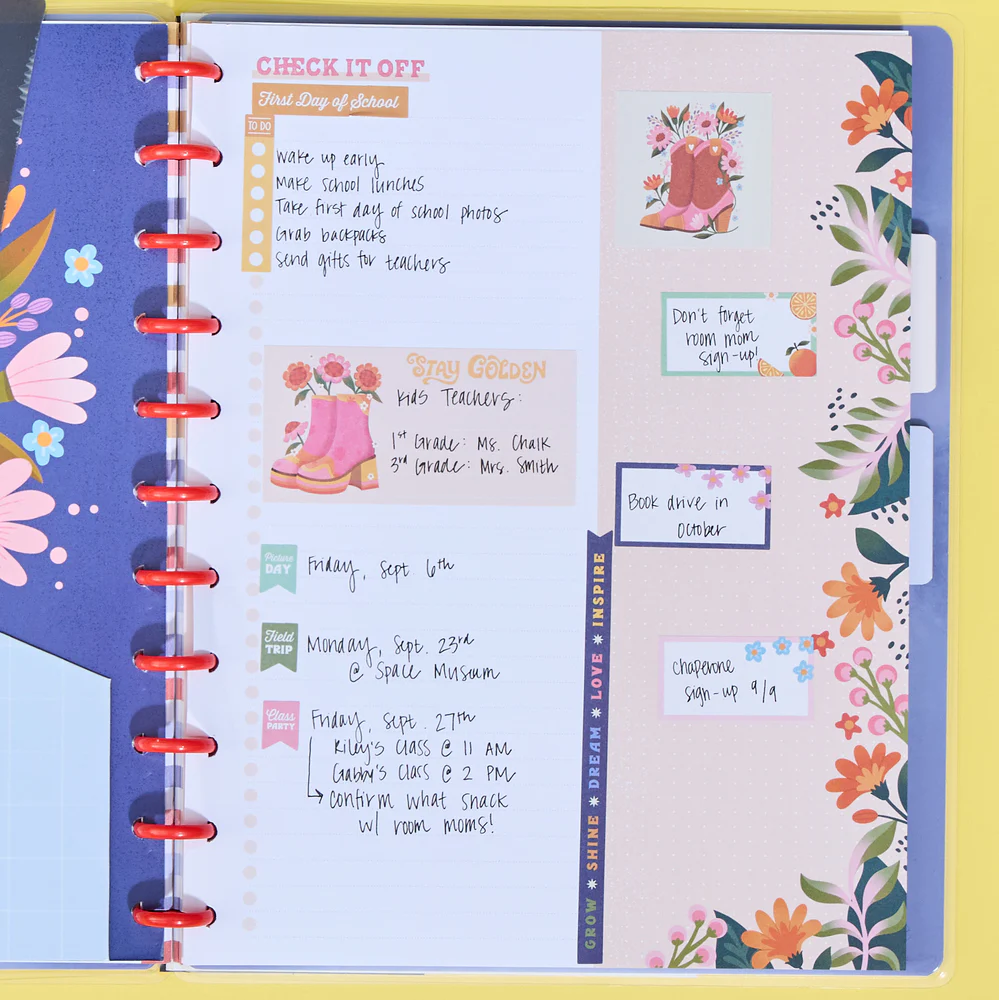 CHECK IT OFF
First Day of School
TO DO
Wake up early
Make school lunches
Take first day of school photos
Grab backpacks
Send gifts for teachers
STAY GOLDEN
Kids Teachers:
1st Grade: Ms. Chalk
3rd Grade: Mrs. Smith
Picture
DAY
Friday, Sept. 6th
Field
TRIP
Monday, Sept. 23rd
@ Space Museum
Class
PARTY
Friday, Sept. 27th
Riley's Class @ 11 AM
Gabby's Class @ 2 PM
confirm what snack
w/ room moms!
GROW * SHINE * DREAM * LOVE * INSPIRE
Don't forget
room mom
sign-up!
Book drive in
October
chaperone
sign-up 9/9